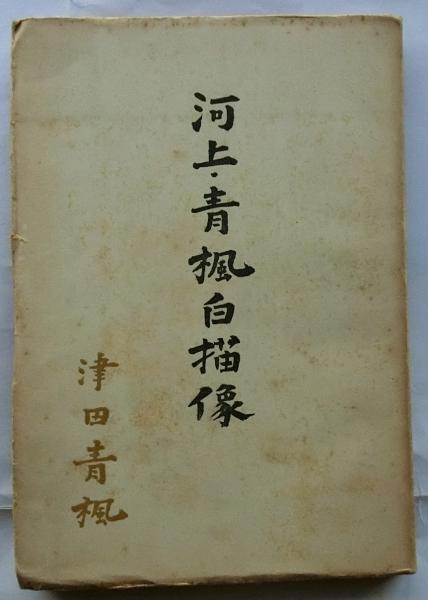 河上·青楓白描像
津田青楓